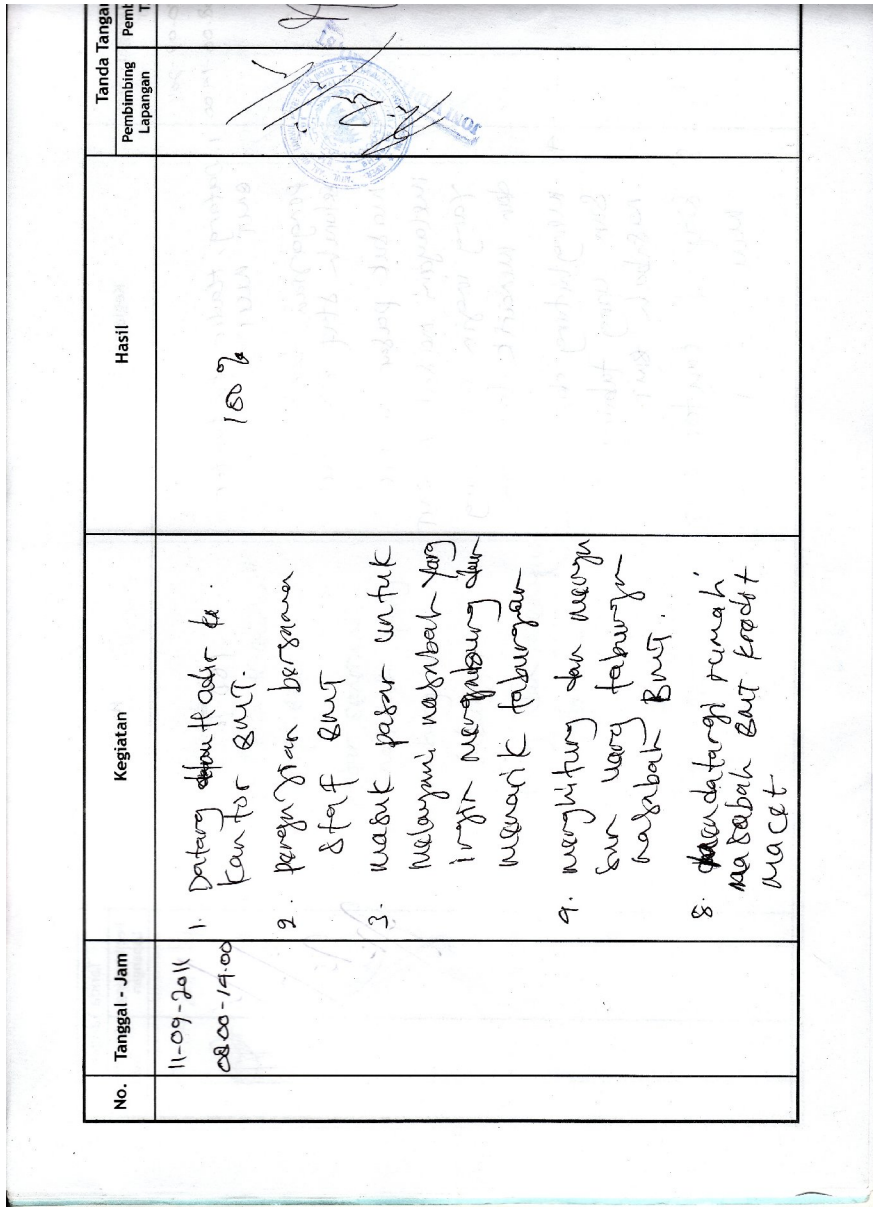 No.
Tanggal - Jam
Kegiatan
Hasil
Tanda Tangan
Pembimbing
Lapangan
Pemb
T
11-09-2011
08.00-14.00
1. Datang hadir ke
kantor BMT.
2. Pengajian bersama
Staf BMT
3. masuk pasar untuk
melayani nasabah yang
ingin mengabung dan
menarik tabungan
4. menghitung dan menyu
sun uang tabungan
nasabah BMT.
8. mendatangi rumah
nasabah BMT kredit
macet
100 %